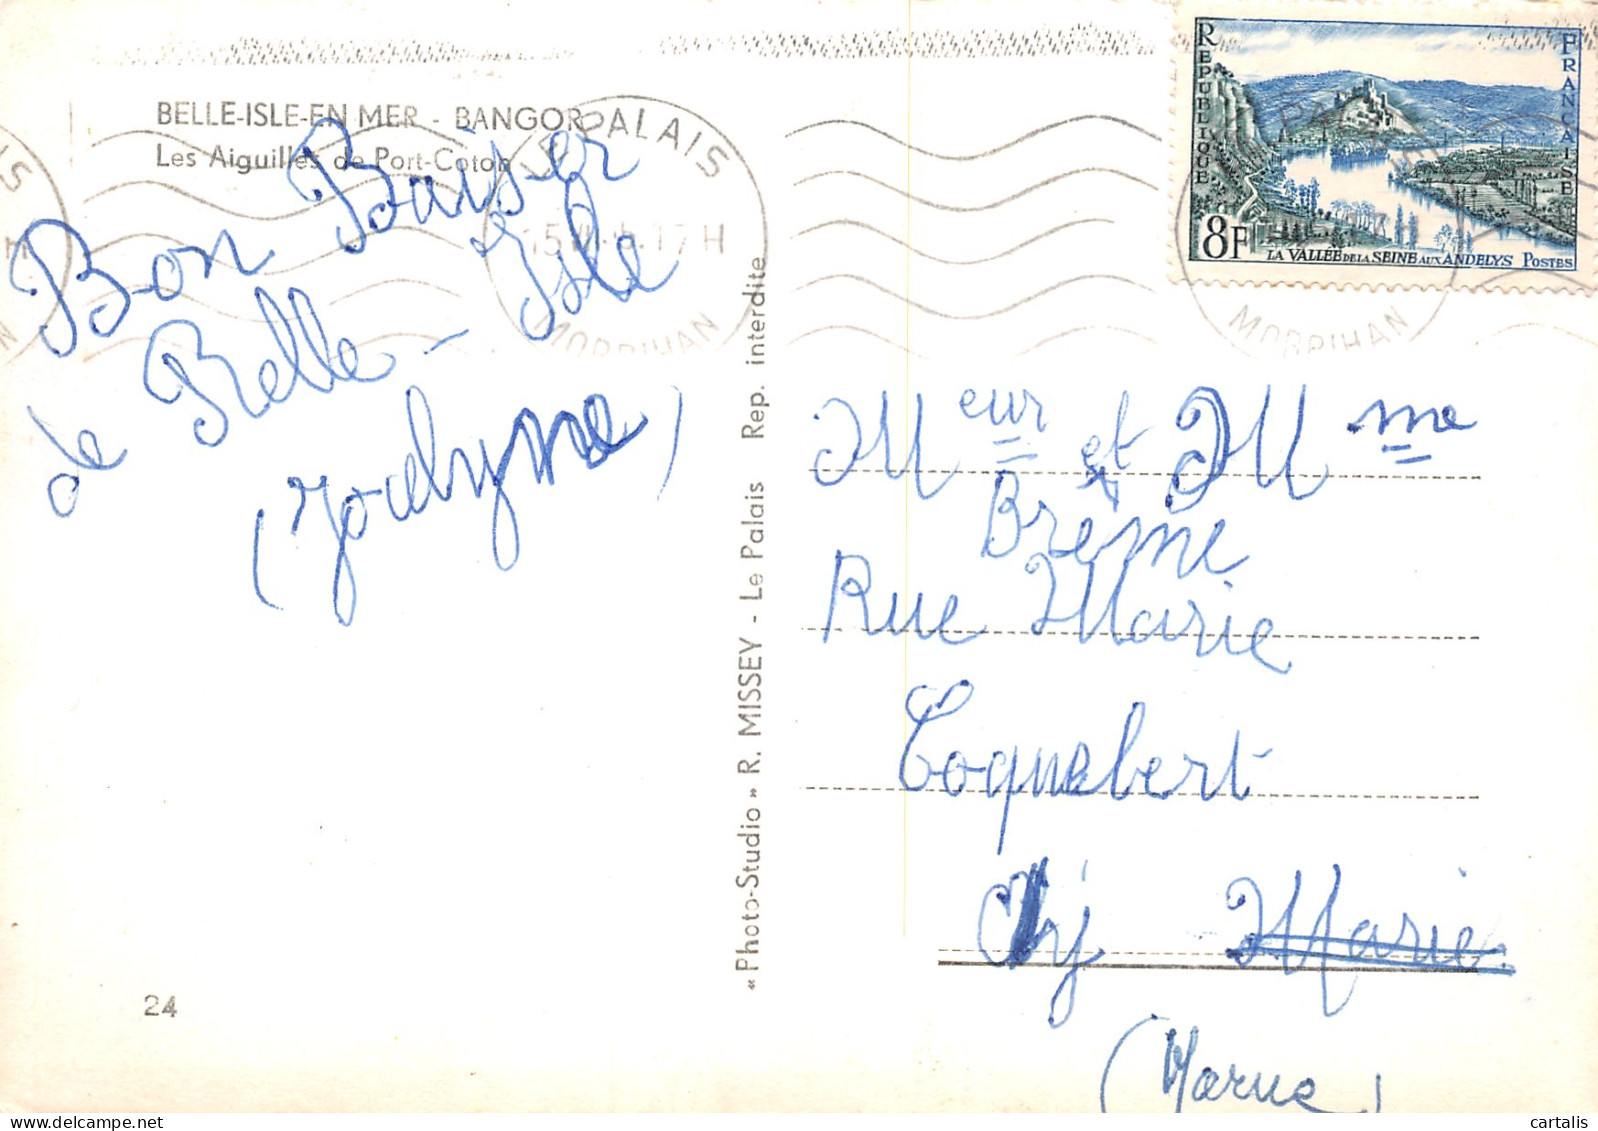 BELLE-ISLE-EN MER - BANGOR
Les Aiguilles de Port-Coton
Bon Baiser
de Belle-Isle
(Jocelyne)
24
« Photo-Studio » R. MISSEY - Le Palais Rep. interdite
LE PALAIS
17 H
MORBIHAN
REPUBLIQUE FRANÇAISE
8F
LA VALLÉE DE LA SEINE AUX ANDELYS POSTES
MORBIHAN
Meur et Mme
Breme
Rue Marie
Coquebert
Marie
(Marne)
cartalis